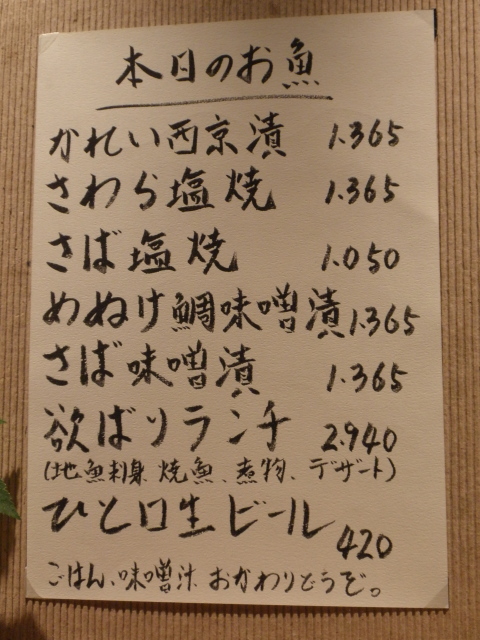 本日のお魚
かれい西京漬 1.365
さわら塩焼 1.365
さば塩焼 1.050
めぬけ鯛味噌漬 1.365
さば味噌漬 1.365
欲ばりランチ 2.940
(地魚刺身、焼魚、煮物、デザート)
ひと口生ビール 420
ごはん、味噌汁おかわりどうぞ。